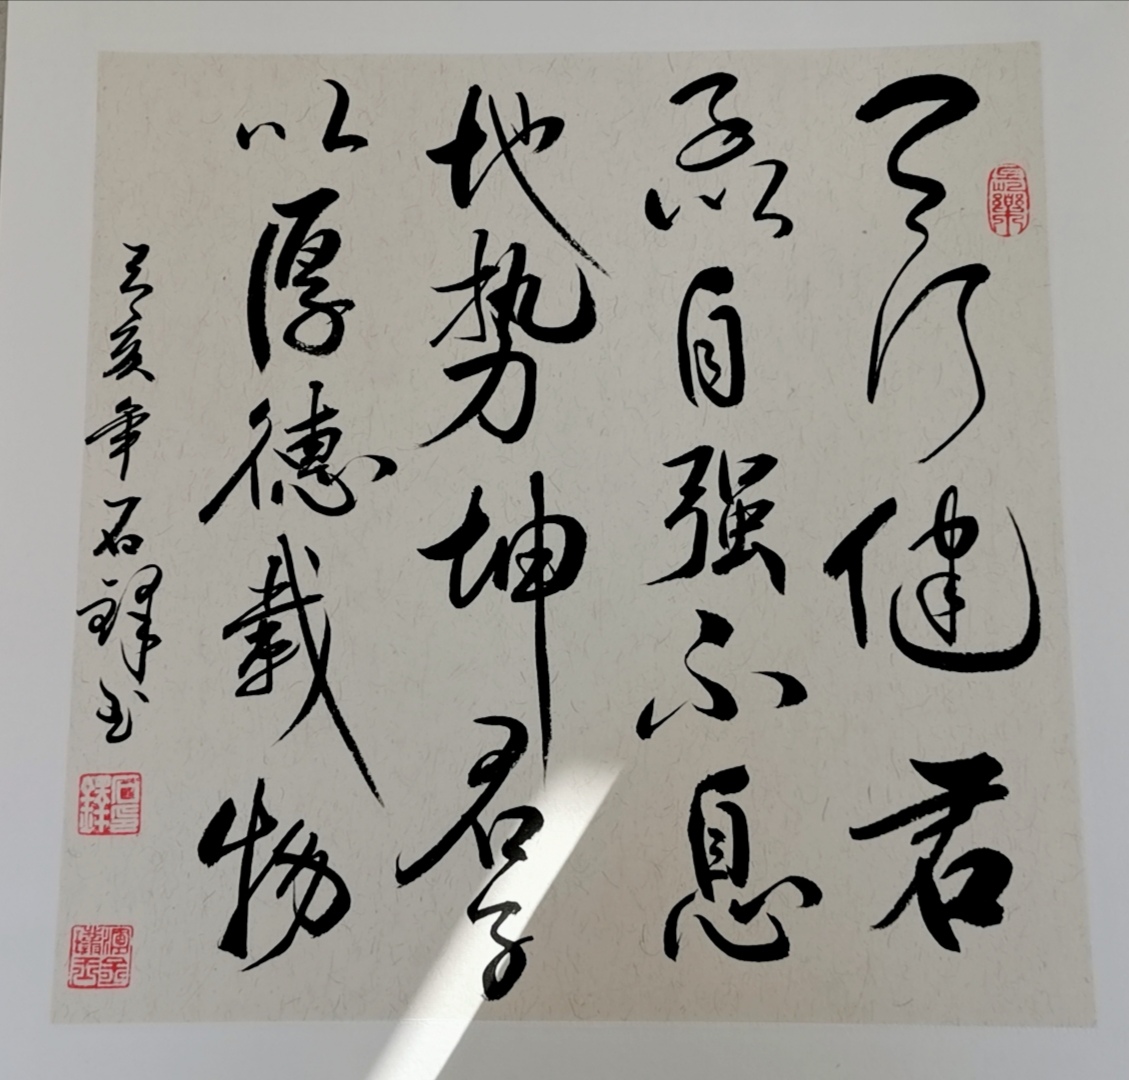 長樂
天行健君
子以自强不息
地势坤君子
以厚德載物
己亥年石書